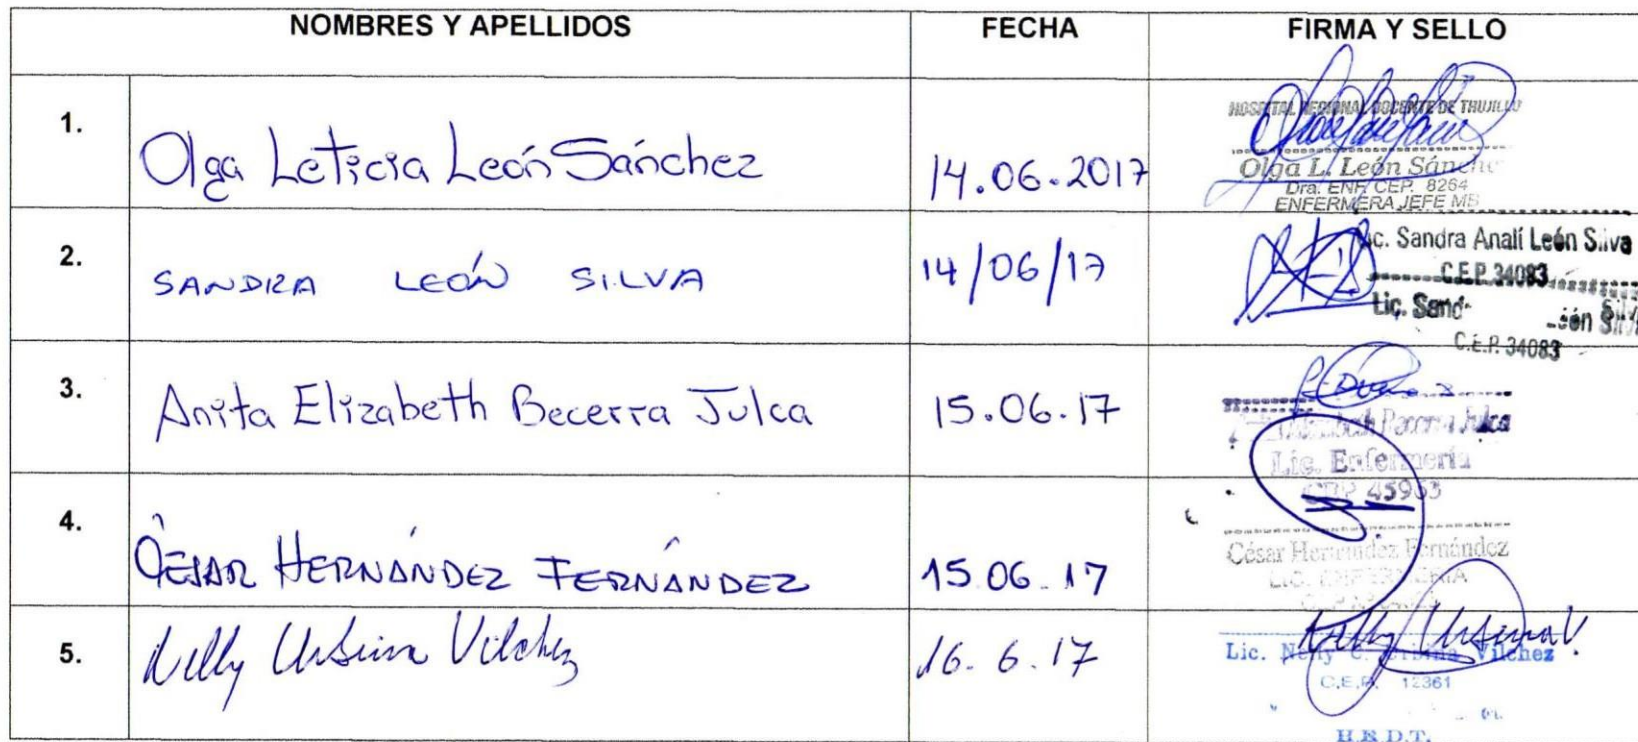 NOMBRES Y APELLIDOS FECHA FIRMA Y SELLO
HOSPITAL REGIONAL DOCENTE DE TRUJILLO
1. Olga Leticia León Sánchez 14.06.2017
Olga L. León Sánchez
Dra. ENF. CEP. 8264
ENFERMERA JEFE MB
2. SANDRA LEÓN SILVA 14/06/17
Lic. Sandra Analí León Silva
C.E.P. 34083
Lic. Sand León Silv
C.E.P. 34083
3. Anita Elizabeth Becerra Julca 15.06.17
Elizabeth Becerra Julca
Lic. Enfermería
45963
4. CÉSAR HERNÁNDEZ FERNÁNDEZ 15.06.17
César Hernández Fernández
LIC. ENFERMERIA
5. Nelly Urbina Vilchez 16.6.17
Nelly Urbina V.
Lic. Nelly C. Urbina Vilchez
C.E.P. 12361
H.R.D.T.